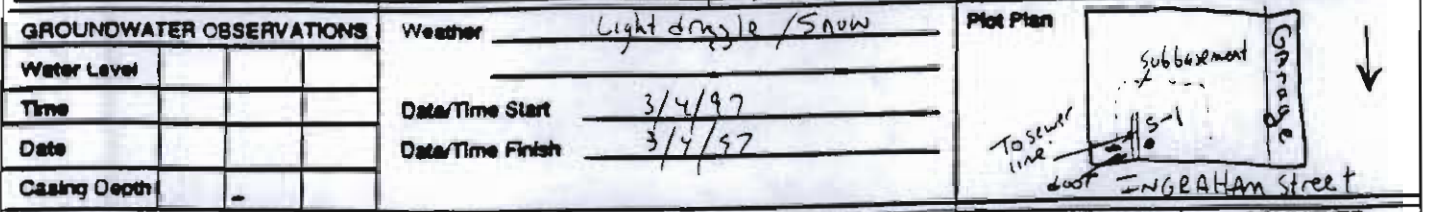 GROUNDWATER OBSERVATIONS
Water Level
Time
Date
Casing Depth -
Weather Light drizzle / Snow
Date/Time Start 3/4/97
Date/Time Finish 3/4/97
Plot Plan
Garage
Subbasement
S-1
To sewer
line
door
INGRAHAM Street